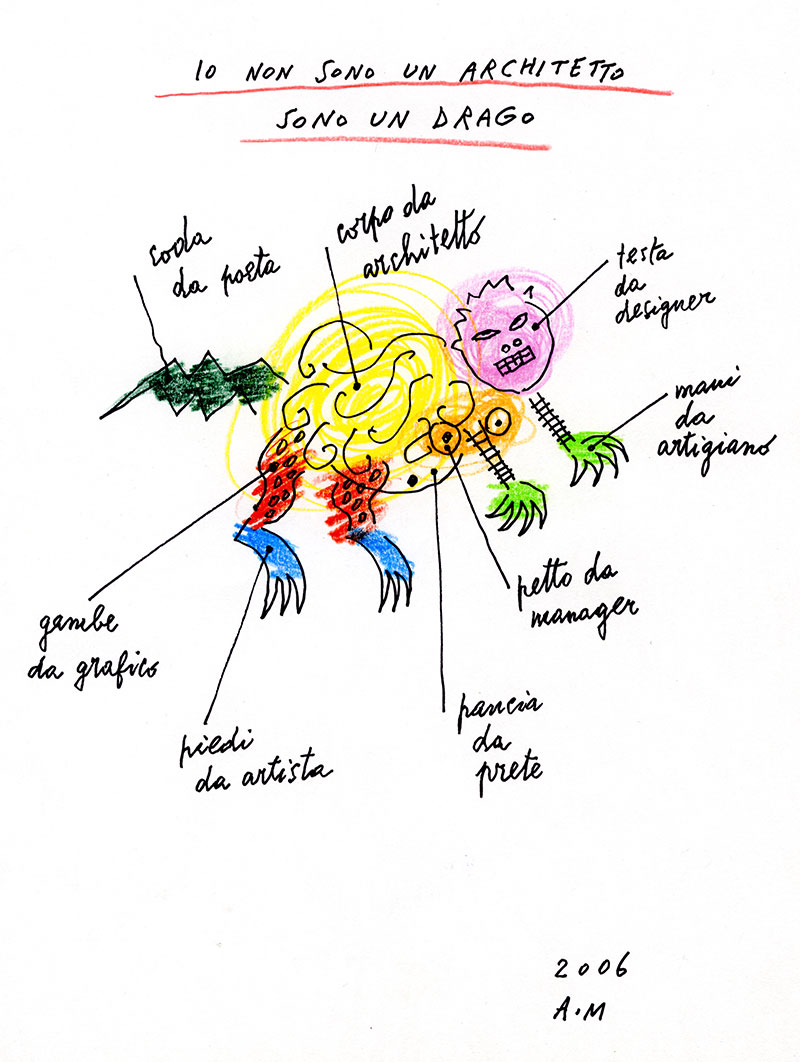 IO NON SONO UN ARCHITETTO
SONO UN DRAGO
coda
da poeta
corpo da
architetto
testa
da
designer
mani
da
artigiano
petto da
manager
gambe
da grafico
piedi
da artista
pancia
da
prete
2006
A.M